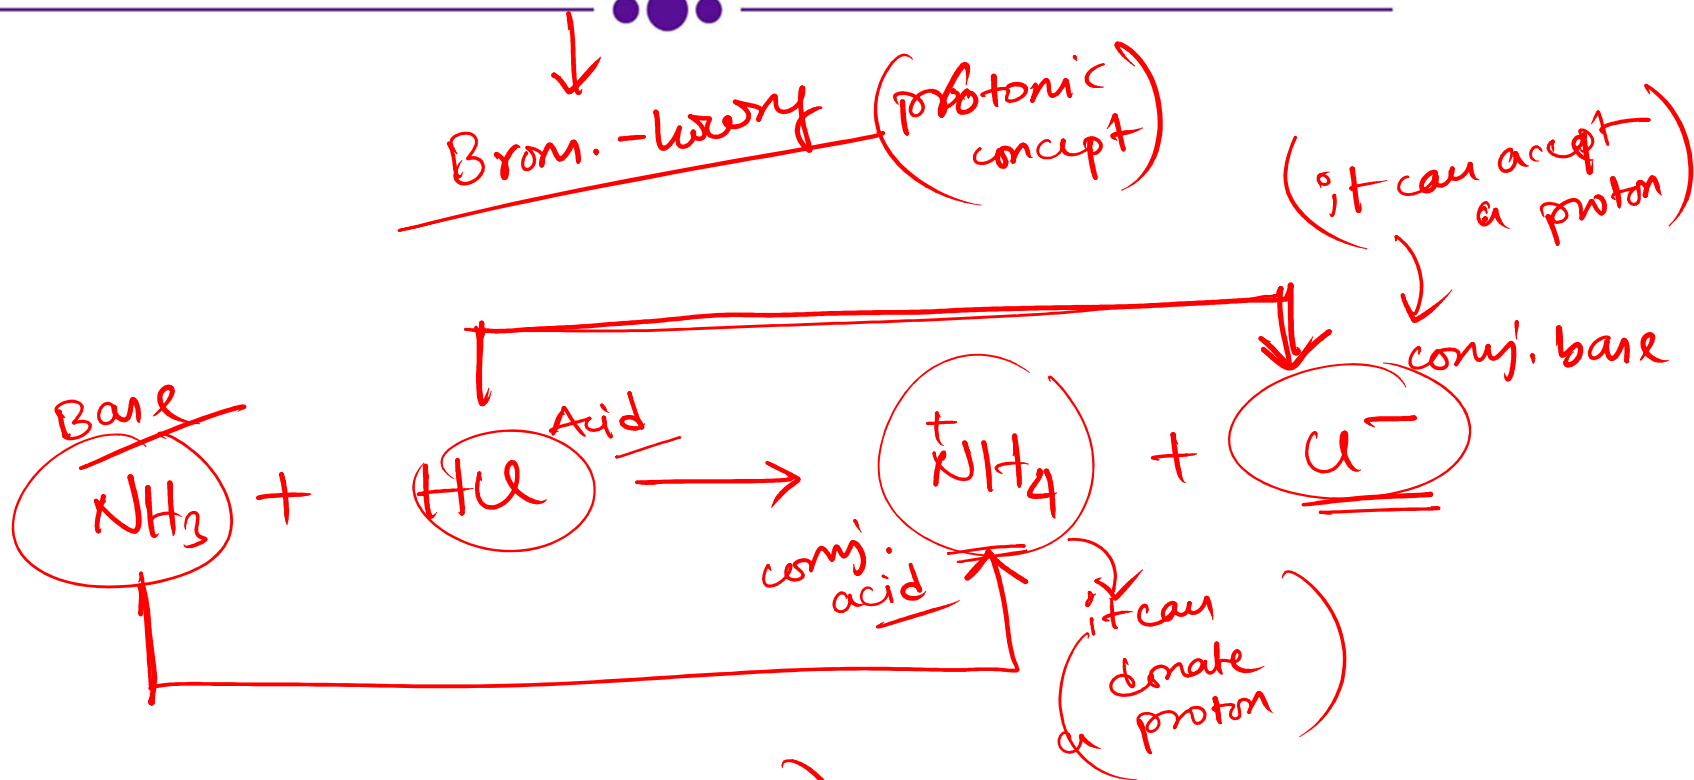 Bron.-Lowry (protonic
concept)
(it can accept
a proton)
conj. base
Base
Acid
NH3 + HCl → +NH4 + Cl−
conj.
acid
(it can
donate
a proton)